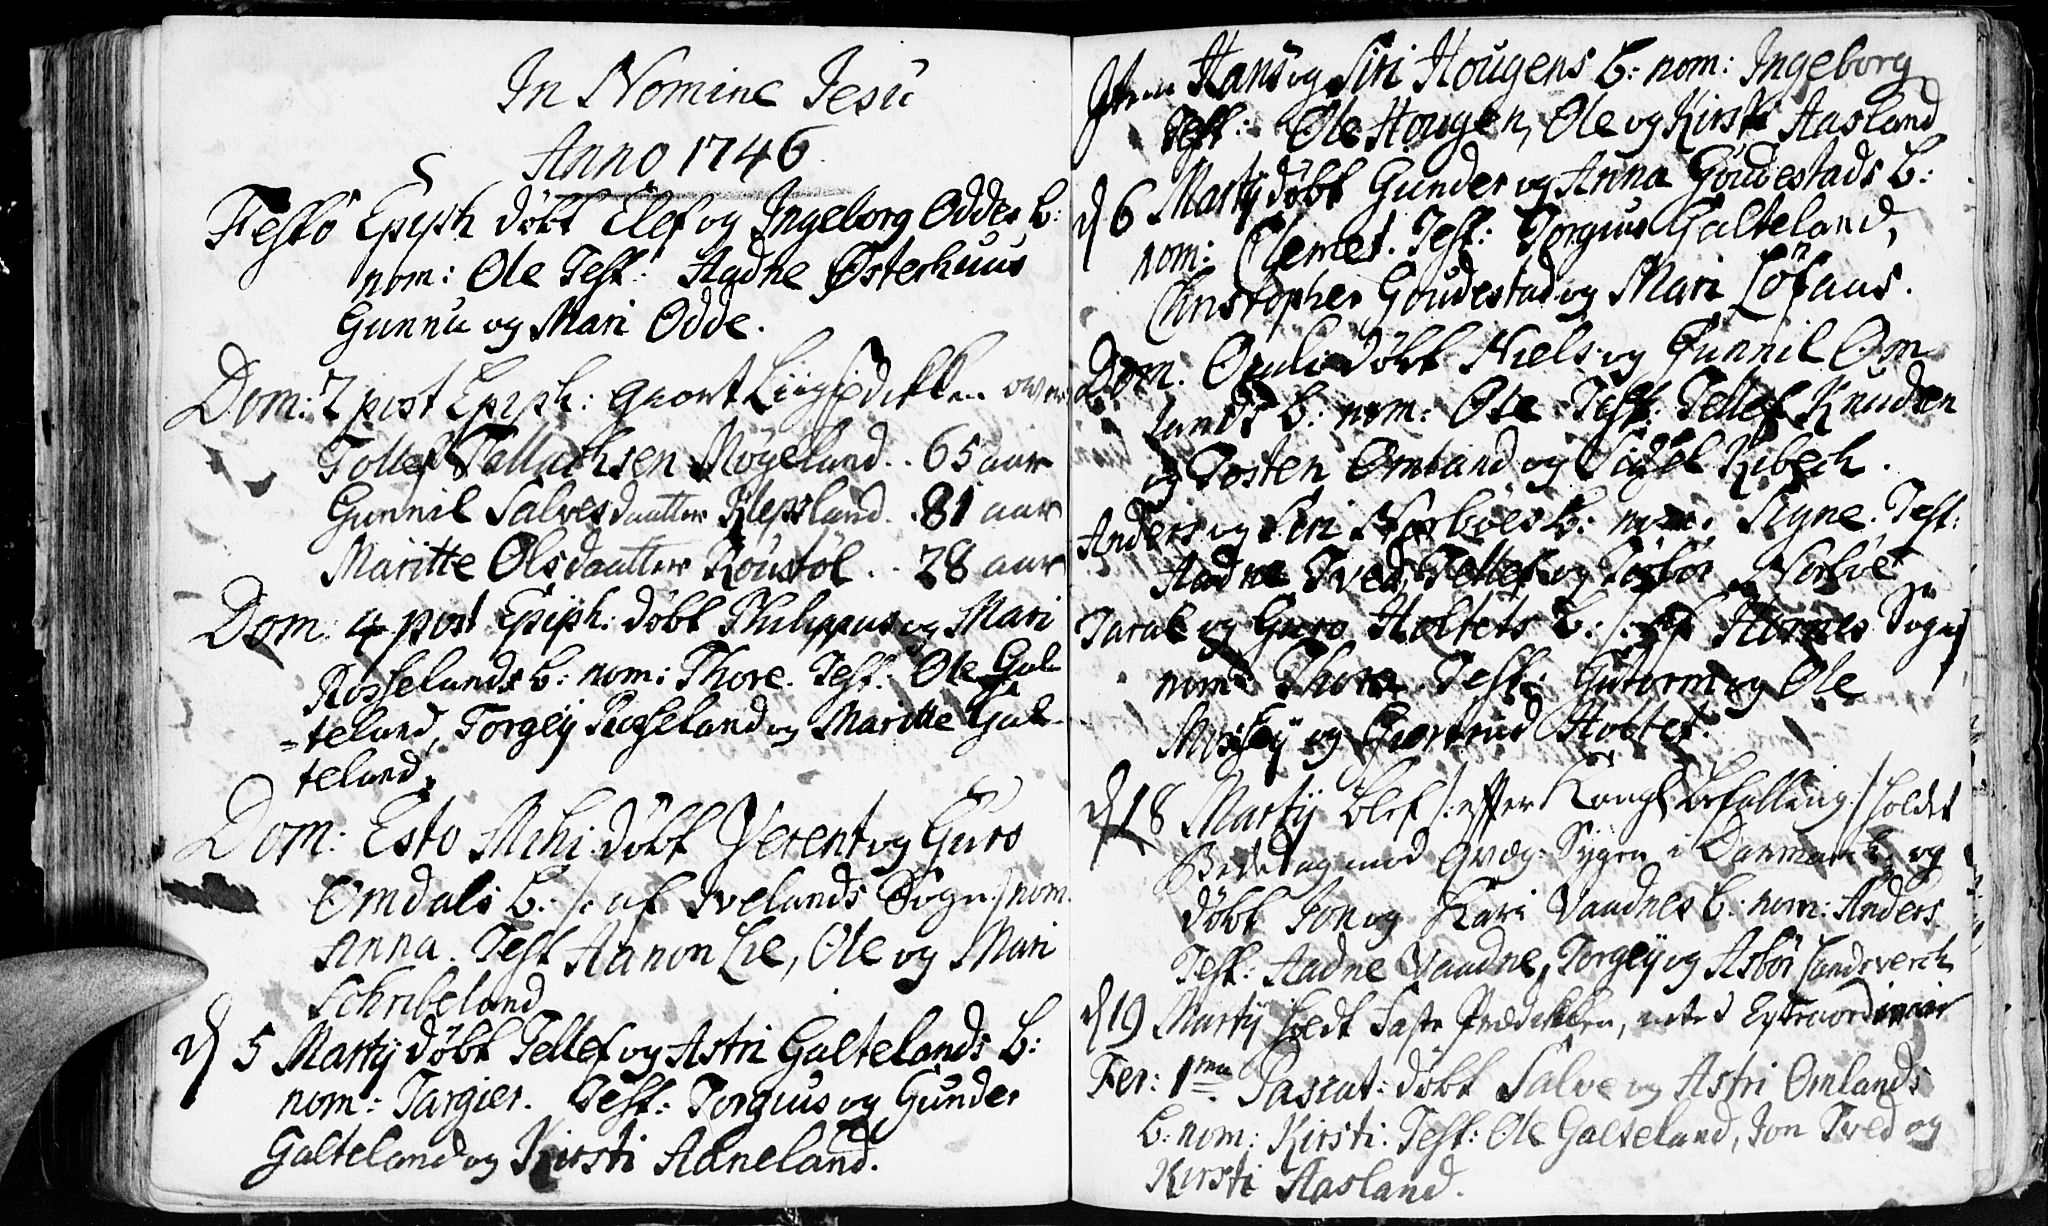 In Nomine Jesu
Anno 1746
Festo Epiph døbt Elef og Ingeborg Oddes b:
nom: Ole Test: Aadne Østerhuus
Gunnu og Mari Odde.
Dom: 2 post Epiph: giort Liigprædikken over
Tollef Tallachsen Møgeland .. 65 aar
Gunnil Salvesdaatter Klepsland .. 81 aar
Maritte Olsdaatter Røustøl .. 28 aar
Dom: 4 post Epiph: døbt Philippus og Mari
Rosselands b: nom: Thore. Test: Ole Gal-
=teland, Torgej Rosseland og Maritte Gal-
teland.
Dom: Esto Mihi døbt Berent og Guro
Omdals b: /: af Ivelands Sogn/ nom.
Anna. Test Aanon Lie, Ole og Mari
Schribeland
d 5 Martij døbt Tellef og Astri Galtelands b:
nom: Targier. Test: Torgius og Gunder
Galteland og Kirsti Aaneland.
Item Hans og Siri Hougens b: nom: Ingeborg
Test: Ole Hougen, Ole og Kirsti Aasland
d 6 Martij døbt Gunder og Anna Goudestads b:
nom: Clemet. Test: Torgius Galteland,
Christopher Goudestad og Mari Løfaas.
Dom. Oculi døbt Niels og Gunnil Om
lands b: nom: Ole Test: Tellef Knudsen
og Tosten Omland og Sidsel Kibech.
Anders og Siri Norbøes b: nom: Signe. Test:
Aadne Tved, Tellef og Norbøe
Taral og Guro Holtets b: /: af Hornes Sogn/
nom: Thore. Test: Gutorm og Ole
Moseij og Giertrud Holtet.
d 18 Martij blef /: efter Kongl. befalling:/ holdet
Bededag mod Qvæg-Sygen i Danmarck, og
døbt Jon og Kari Vaadnes b: nom: Anders
Test: Aadne Vaadne, Torgeij og Asbør Landsverch
d 19 Martij holdt Faste Prædikken, Extraordinair
Fer: 1ma Pascat: døbt Salve og Astri Omlands
b: nom: Kirsti: Test: Ole Galteland, Jon Tved og
Kirsti Aasland.